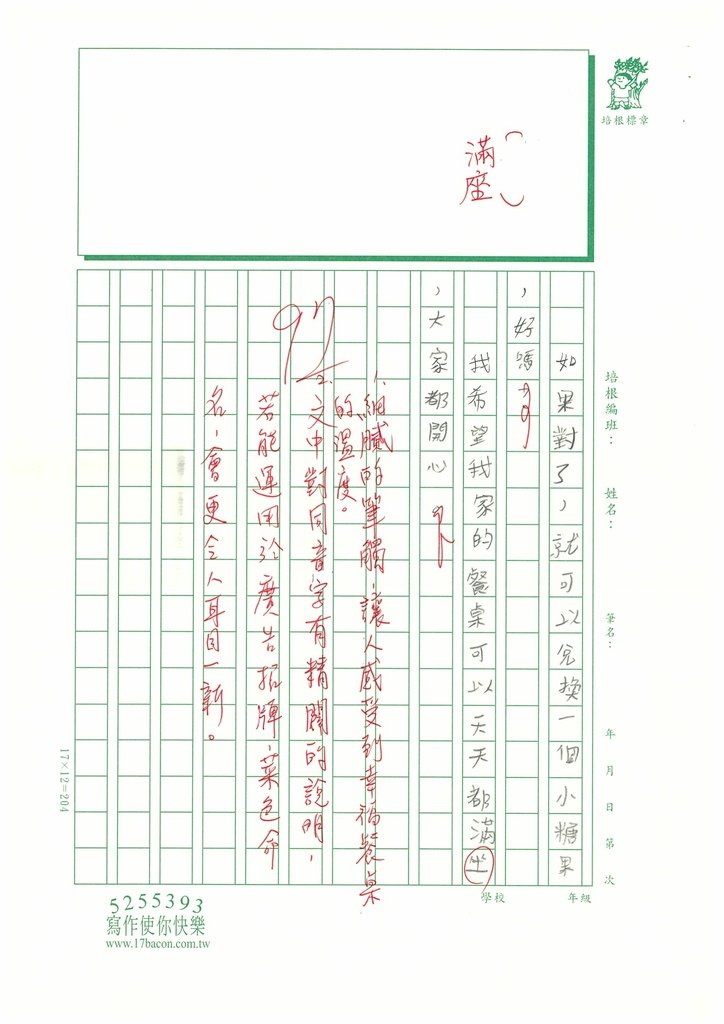 培根標章
滿座
培根編班：
姓名：
筆名：
年 月 日 第 次
如果對了，就可以兌換一個小糖果
，好嗎
我希望我家的餐桌可以天天都滿坐
，大家都開心
1. 細膩的筆觸，讓人感受到幸福餐桌
的溫度。
2. 文中對同音字有精闢的說明，
若能運用於廣告招牌，菜色命
名，會更令人耳目一新。
17×12=204
學校
年級
5255393
寫作使你快樂
www.17bacon.com.tw